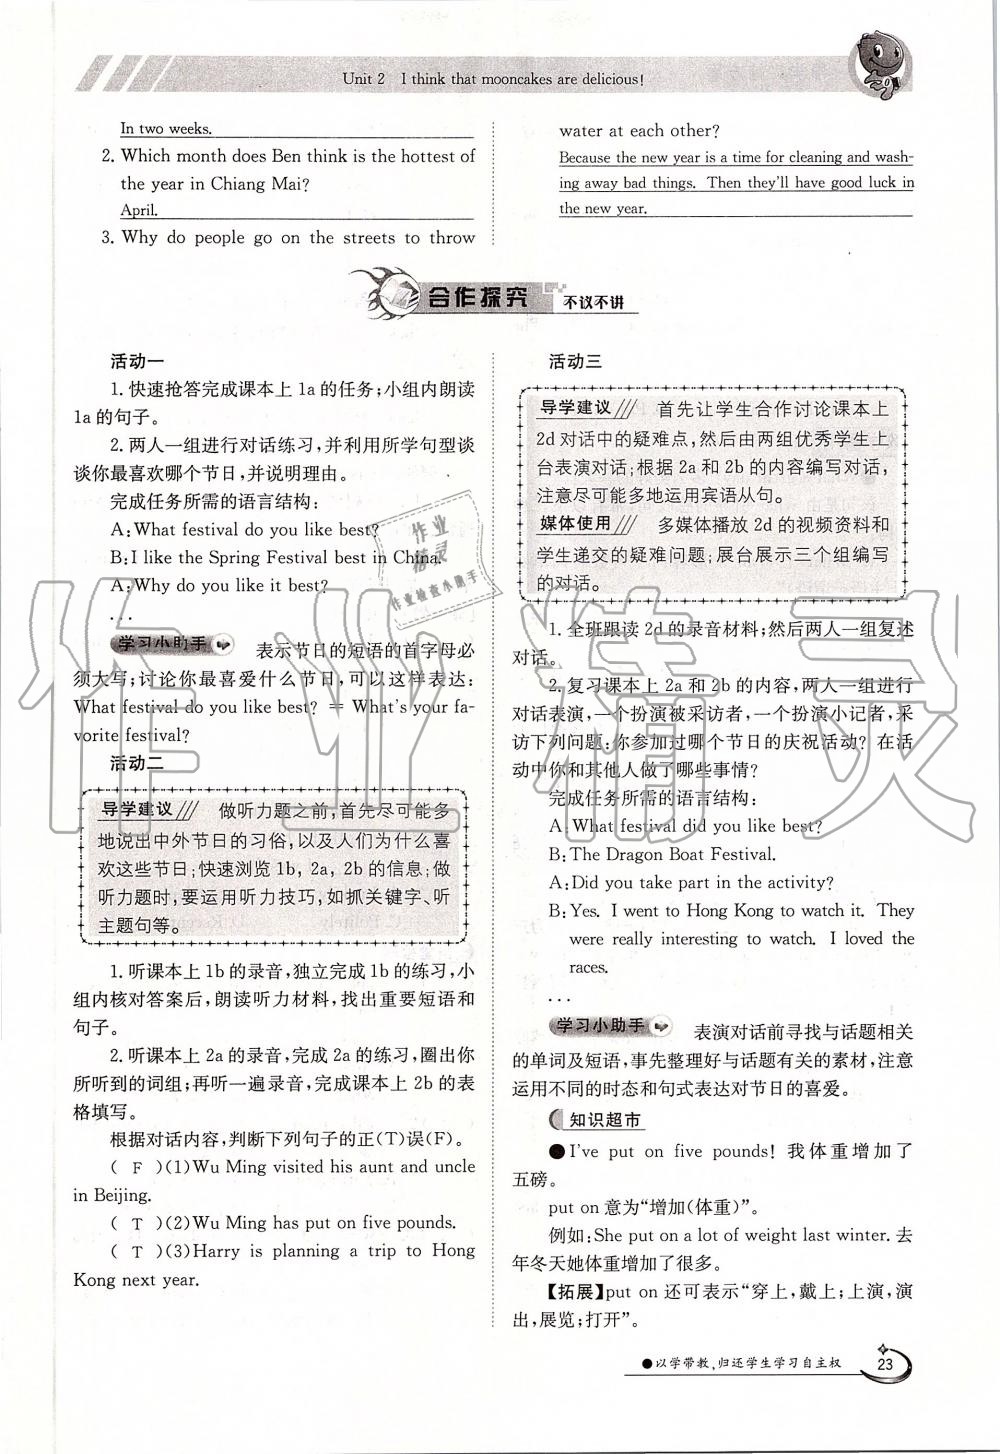 Unit 2 I think that mooncakes are delicious!
In two weeks.
2. Which month does Ben think is the hottest of
the year in Chiang Mai?
April.
3. Why do people go on the streets to throw
water at each other?
Because the new year is a time for cleaning and wash-
ing away bad things. Then they'll have good luck in
the new year.
合作探究 不议不讲
活动一
1. 快速抢答完成课本上 1a 的任务;小组内朗读
1a 的句子。
2. 两人一组进行对话练习,并利用所学句型谈
谈你最喜欢哪个节日,并说明理由。
完成任务所需的语言结构:
A: What festival do you like best?
B: I like the Spring Festival best in China.
A: Why do you like it best?
...
学习小助手 表示节日的短语的首字母必
须大写;讨论你最喜爱什么节日,可以这样表达:
What festival do you like best? = What's your fa-
vorite festival?
活动二
导学建议 做听力题之前,首先尽可能多
地说出中外节日的习俗,以及人们为什么喜
欢这些节日;快速浏览 1b, 2a, 2b 的信息;做
听力题时,要运用听力技巧,如抓关键字、听
主题句等。
1. 听课本上 1b 的录音,独立完成 1b 的练习,小
组内核对答案后,朗读听力材料,找出重要短语和
句子。
2. 听课本上 2a 的录音,完成 2a 的练习,圈出你
所听到的词组;再听一遍录音,完成课本上 2b 的表
格填写。
根据对话内容,判断下列句子的正(T)误(F)。
( F )(1)Wu Ming visited his aunt and uncle
in Beijing.
( T )(2)Wu Ming has put on five pounds.
( T )(3)Harry is planning a trip to Hong
Kong next year.
活动三
导学建议 首先让学生合作讨论课本上
2d 对话中的疑难点,然后由两组优秀学生上
台表演对话;根据 2a 和 2b 的内容编写对话,
注意尽可能多地运用宾语从句。
媒体使用 多媒体播放 2d 的视频资料和
学生递交的疑难问题;展台展示三个组编写
的对话。
1. 全班跟读 2d 的录音材料;然后两人一组复述
对话。
2. 复习课本上 2a 和 2b 的内容,两人一组进行
对话表演,一个扮演被采访者,一个扮演小记者,采
访下列问题:你参加过哪个节日的庆祝活动? 在活
动中你和其他人做了哪些事情?
完成任务所需的语言结构:
A: What festival did you like best?
B: The Dragon Boat Festival.
A: Did you take part in the activity?
B: Yes. I went to Hong Kong to watch it. They
were really interesting to watch. I loved the
races.
...
学习小助手 表演对话前寻找与话题相关
的单词及短语,事先整理好与话题有关的素材,注意
运用不同的时态和句式表达对节日的喜爱。
知识超市
●I've put on five pounds! 我体重增加了
五磅。
put on 意为“增加(体重)”。
例如:She put on a lot of weight last winter. 去
年冬天她体重增加了很多。
【拓展】put on 还可表示“穿上,戴上;上演,演
出,展览;打开”。
●以学带教,归还学生学习自主权
23
作业精灵
作业
精灵
作业检查小助手